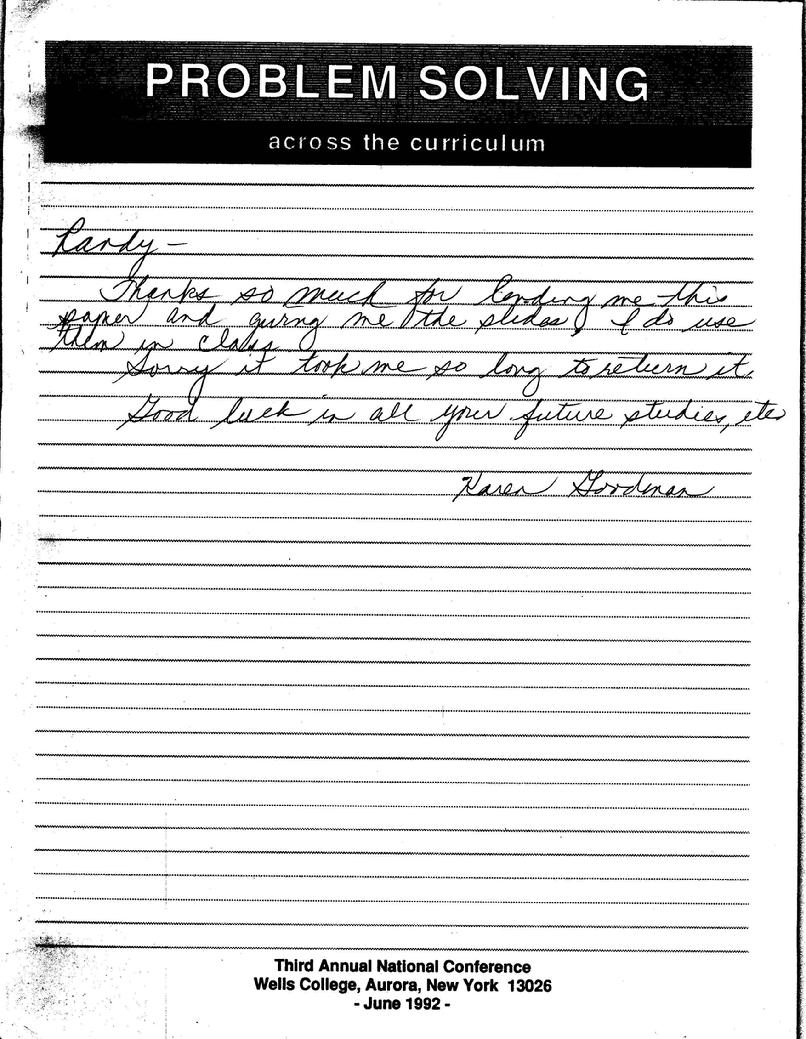 PROBLEM SOLVING
across the curriculum
Randy -
Thanks so much for lending me this
paper and giving me the slides, I do use
them in class.
Sorry it took me so long to return it.
Good luck in all your future studies, etc
Karen Goodman
Third Annual National Conference
Wells College, Aurora, New York 13026
- June 1992 -